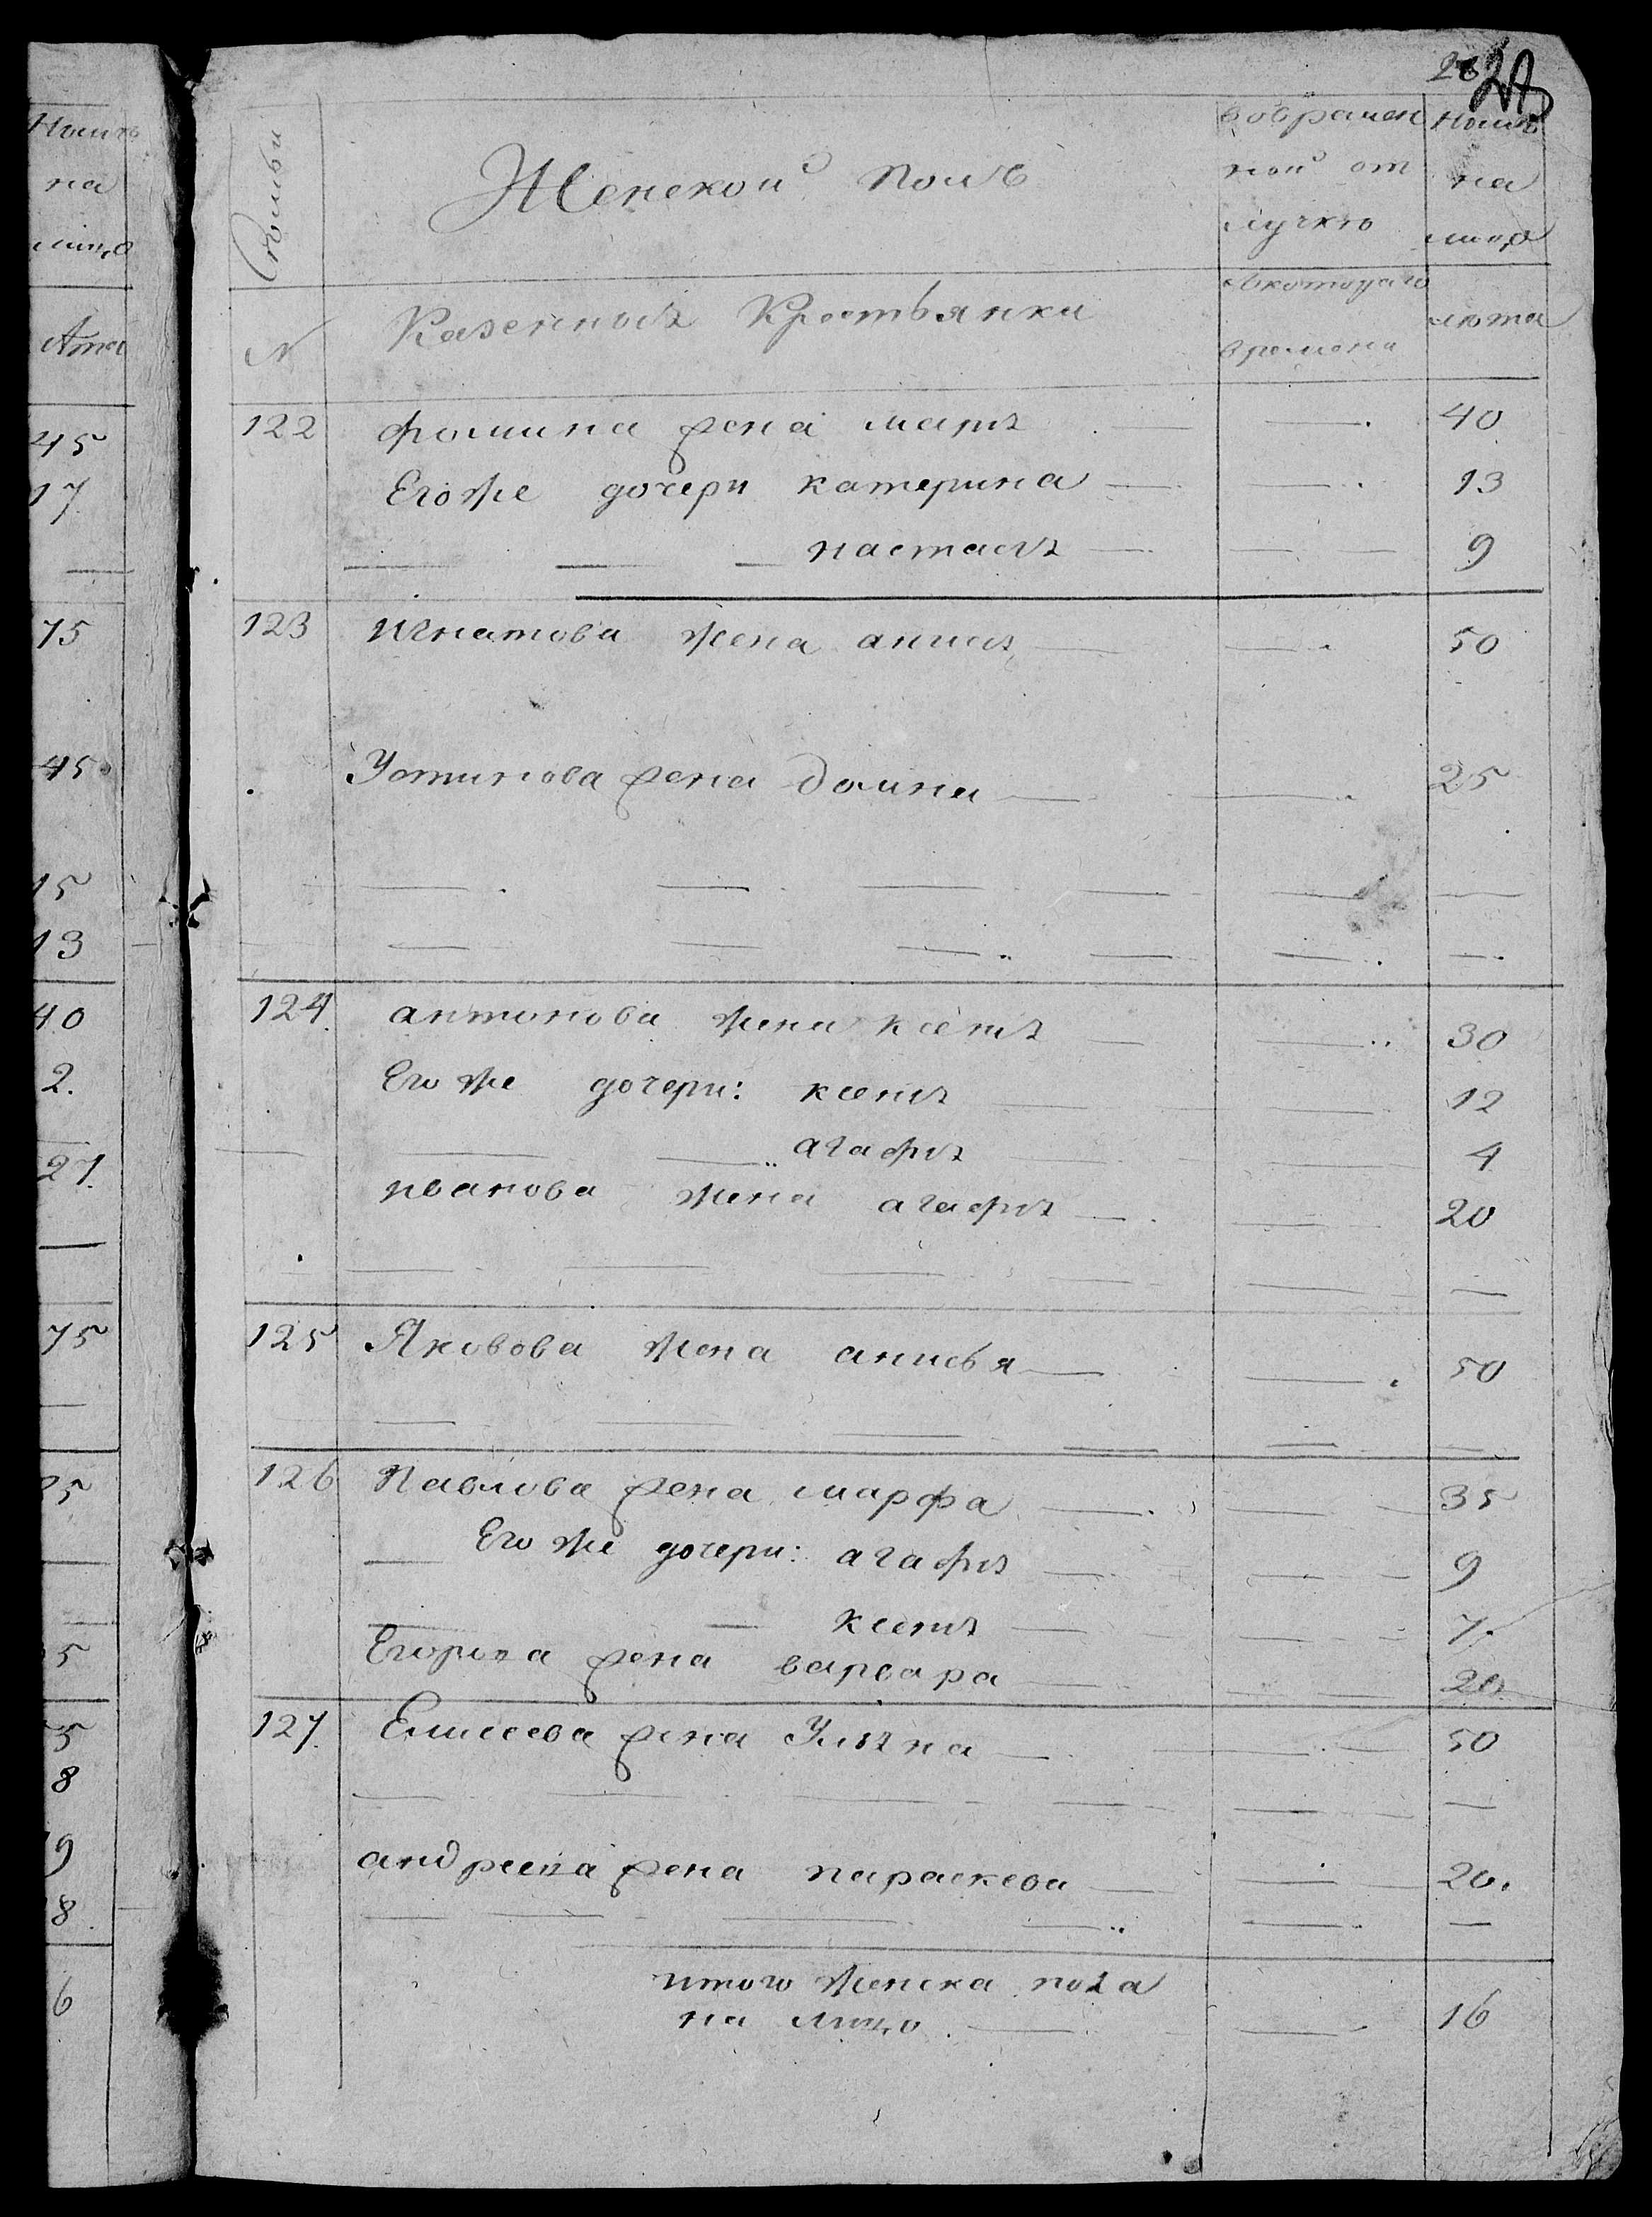 Ныне
на
лицо
лета
45
17
75
45
15
13
40
2.
27.
75
5
5
8
9
8
6
28
Семьи
Женской полъ
вовремен
ной от
лучкѣ
Нынѣ
на
лицо
№
Казенныя Крестьянки
с котораго
времени
лѣта
122 фомина жена маря 40
Егоже дочери катерина 13
настася 9
123 игнатова жена анися 50
Устинова жена домна 25
124 антонова жена ксеня 30
Его же дочери: ксеня 12
агафя 4
иванова жена агафя 20
125 Яковова жена анисья 50
126 Павлова жена марфа 35
Его же дочери: агафя 9
ксеня 7.
Егорова жена варвара 20
127. Елисеева жена Уляна 50
андреева жена параскева 20.
итого женска пола
на лицо 16